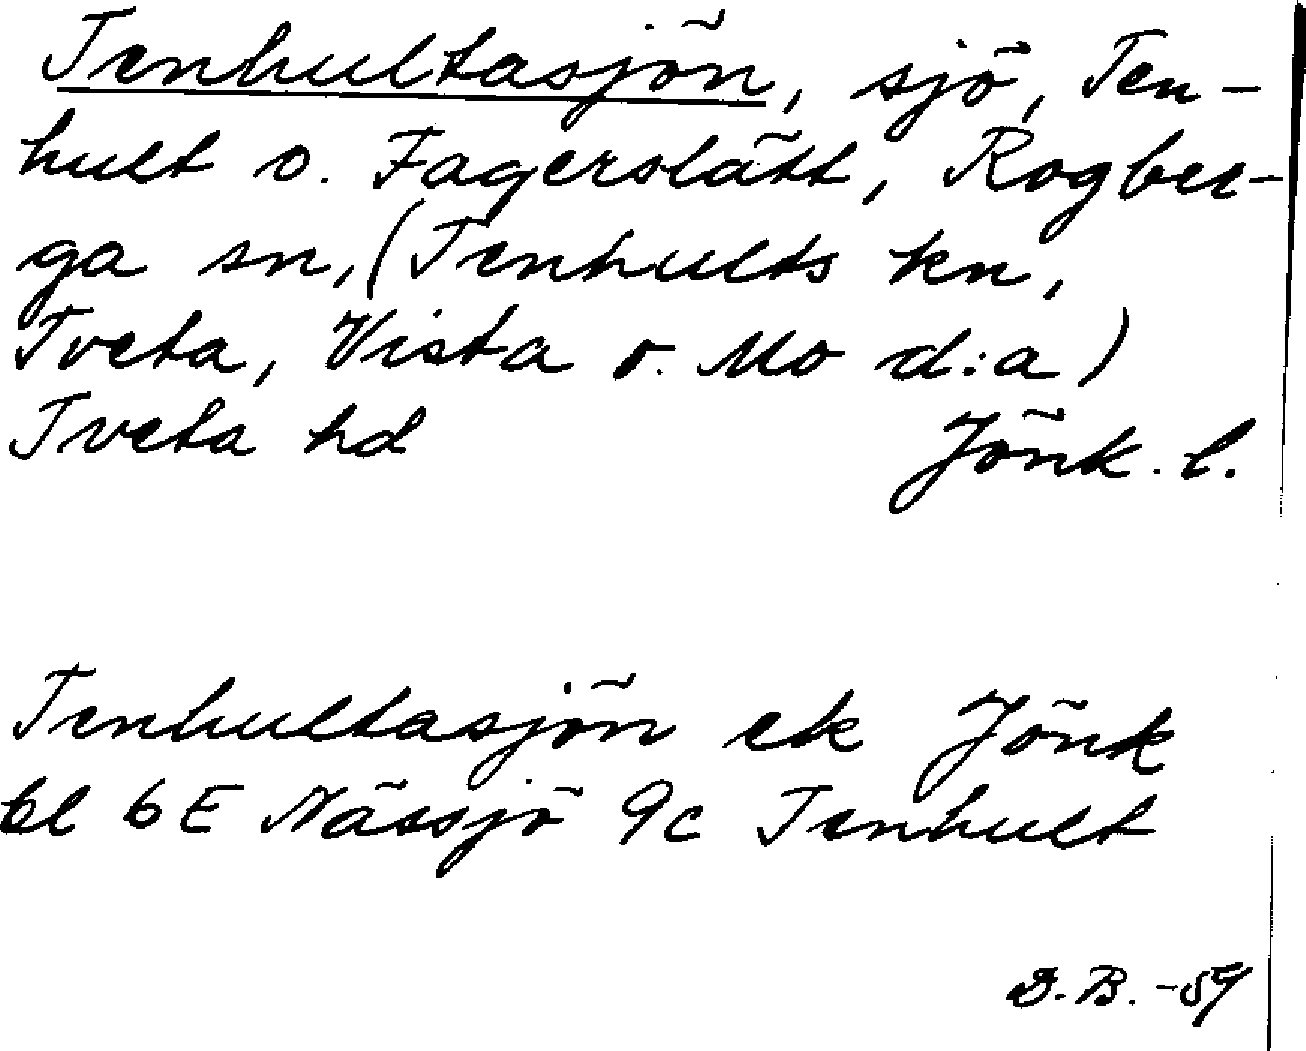 Tenhultasjön, sjö, Ten-
hult o. Fagerslätt, Rogber-
ga sn, (Tenhults kn,
Tveta, Vista o. Mo d:a)
Tveta hd Jönk. l.
Tenhultasjön ek Jönk
bl 6E Nässjö 9c Tenhult
D. B. -59